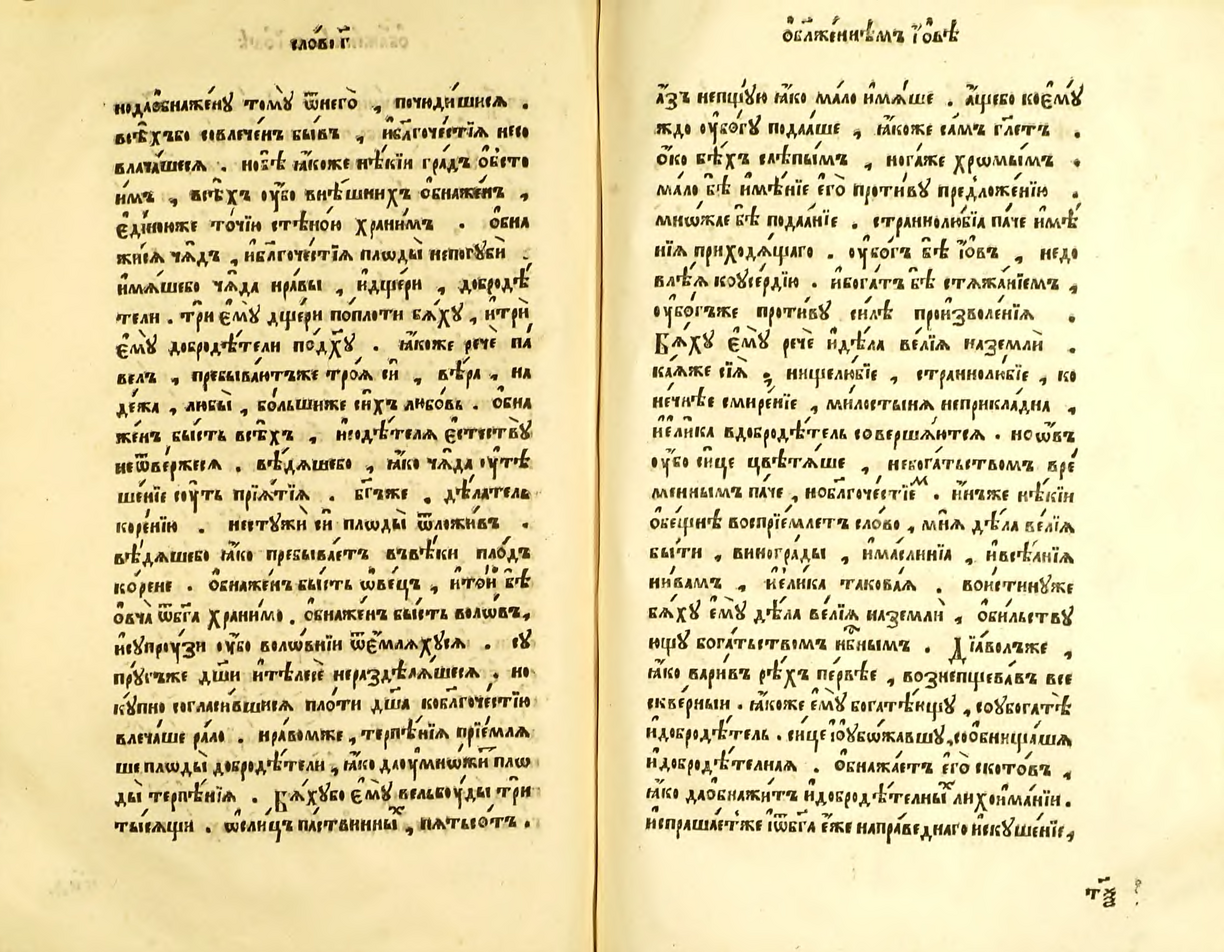 сло́во г҃
нодаѡбнаже́нꙋ томꙋ̀ ѿнего̀ , почюди́шисѧ .
всѣ́хъбо совлече́нъ бы́въ , иблгоче́стїѧ несо
влача́шесѧ . нобѣ̀ ꙗ́коже нѣ́кїи гра́дъ обсто
и́мъ , всѣ́хъ оу҆́бо внѣ́шнихъ обнаже́нъ ,
є҆ди́ноюже то́чїю стѣно́ю храни́мъ . обна
жи́сѧ ча́дъ , иблгоче́стїѧ плоды̀ непогꙋбѝ .
и҆мѧ́шебо ча́да нра́вы , идще́ри , добродѣ́
тели . трѝ є҆мꙋ̀ дще́ри попло́ти бѧ́хꙋ , итрѝ
є҆мꙋ̀ добродѣ́тели под̾хꙋ . ꙗ́коже речѐ па́
велъ , пребыва́ютъже троѧ̀ сѝ , вѣ́ра , на
де́жа , любы̀ , бо́льшиже си́хъ любо́вь . обна
же́нъ бы́сть всѣ́хъ , исодѣ́телѧ є҆стествꙋ̀
неѿве́ржесѧ . вѣ́дѧшебо , ꙗ́ко ча́да оу҆тѣ
ше́нїе сꙋ́ть прїѧ́тїѧ . бг҃ъже , дѣ́латель
коре́нїю . нестꙋжѝ сѝ плоды̀ ѿложи́въ .
вѣ́дѧшебо ꙗ́ко пребыва́етъ въвѣ́ки пло́дъ
ко́рене . обнаже́нъ бы́сть ѻ҆ве́цъ , ито́й бѣ̀
овча̀ ѿбг҃а храни́мо . обнаже́нъ бы́сть воло́въ,
исꙋпрꙋ́зи оу҆́бо воло́внїи ѿе́млѧхꙋсѧ . сꙋ
прꙋ́гъже дш҃и ите́лесе нераздѣлѧ́шесѧ , но
кꙋ́пно согласи́вшисѧ пло́ти дш҃а коблгоче́стїю
влеча́ше ра́ло . нра́вомже , терпѣ́нїѧ прїе́млѧ
ше плоды̀ добродѣ́тели , ꙗ́ко даоу҆мно́жи пло
ды̀ терпѣ́нїѧ . Бѧ́хꙋбо є҆мꙋ̀ вельбоу́ды трѝ
ты́сѧщи . ѻ҆сли́цъ па́ствинныⷯ , пѧ́тьсо́тъ .
облже́ннѣмъ і҆́овѣ
а҆́зъ непщꙋ́ю ꙗ́ко ма́ло имѧ́ше . а҆́щебо коемꙋ́
ждо оу҆бо́гꙋ подаа́ше , ꙗ́коже са́мъ гл҃етъ .
о҆́ко бѣ́хъ слѣпы́мъ , нога́же хрѡмы́мъ .
ма́ло бѣ̀ имѣ́нїе его̀ проти́вꙋ предложе́нїю .
мно́жае бѣ̀ подаа́нїе . страннолю́бїа па́че имѣ́
нїѧ приходѧ́щаго . оу҆бо́гъ бѣ̀ і҆́овъ , недо
влѣ́ѧ коусе́рдїю . ибога́тъ бѣ̀ стѧжа́нїемъ ,
оу҆бо́гъже проти́вꙋ си́лѣ произволе́нїѧ .
Бѧ́хꙋ є҆мꙋ̀ речѐ идѣ́ла ве́лїѧ наземлѝ .
ка́ѧже сїѧ̀ ; нищелю́бїе , страннолю́бїе , ко
не́чнѣе смире́нїе , ми́лостынѧ неприкла́дна ,
ие́лика вдобродѣ́тель соверша́ютсѧ . ноі҆́ѡвъ
оу҆́бо си́це цвѣтѧ́ше , небога́тьствомъ вре́
менны́мъ па́че , ноблгоче́стїеⷨ . и҆́нъже нѣ́кїи
обе́щнѣ воспрїе́млетъ сло́во , мнѧ̀ дѣ́ла ве́лїѧ
бы́ти , виногра́ды , има́слинїа , ивсѣ́ѧнїѧ
ни́вамъ , ие́лика такова́ѧ . вои́стинꙋже
бѧ́хꙋ є҆мꙋ̀ дѣ́ла ве́лїѧ наземлѝ , оби́льствꙋ
ющꙋ бога́тьствомъ нбⷭ҇нымъ . Дїа́волъже ,
ꙗ́ко вари́въ рѣ́хъ пе́рвѣе , вознепщева́въ все
скве́рныи . ꙗ́коже є҆мꙋ̀ богатѣ́ющꙋ , собогатѣ́
идобродѣ́тель . си́це іоубожа́вшꙋ,сообнища́шѧ
идобродѣ́телнаѧ . обнажа́етъ его̀ ското́въ ,
ꙗ́ко даобнажи́тъ идобродѣ́телныⷯ лихоима́нїи .
испраша́етъже і҆̀ѿбг҃а е҆́же напра́веднаго искꙋше́нїе,